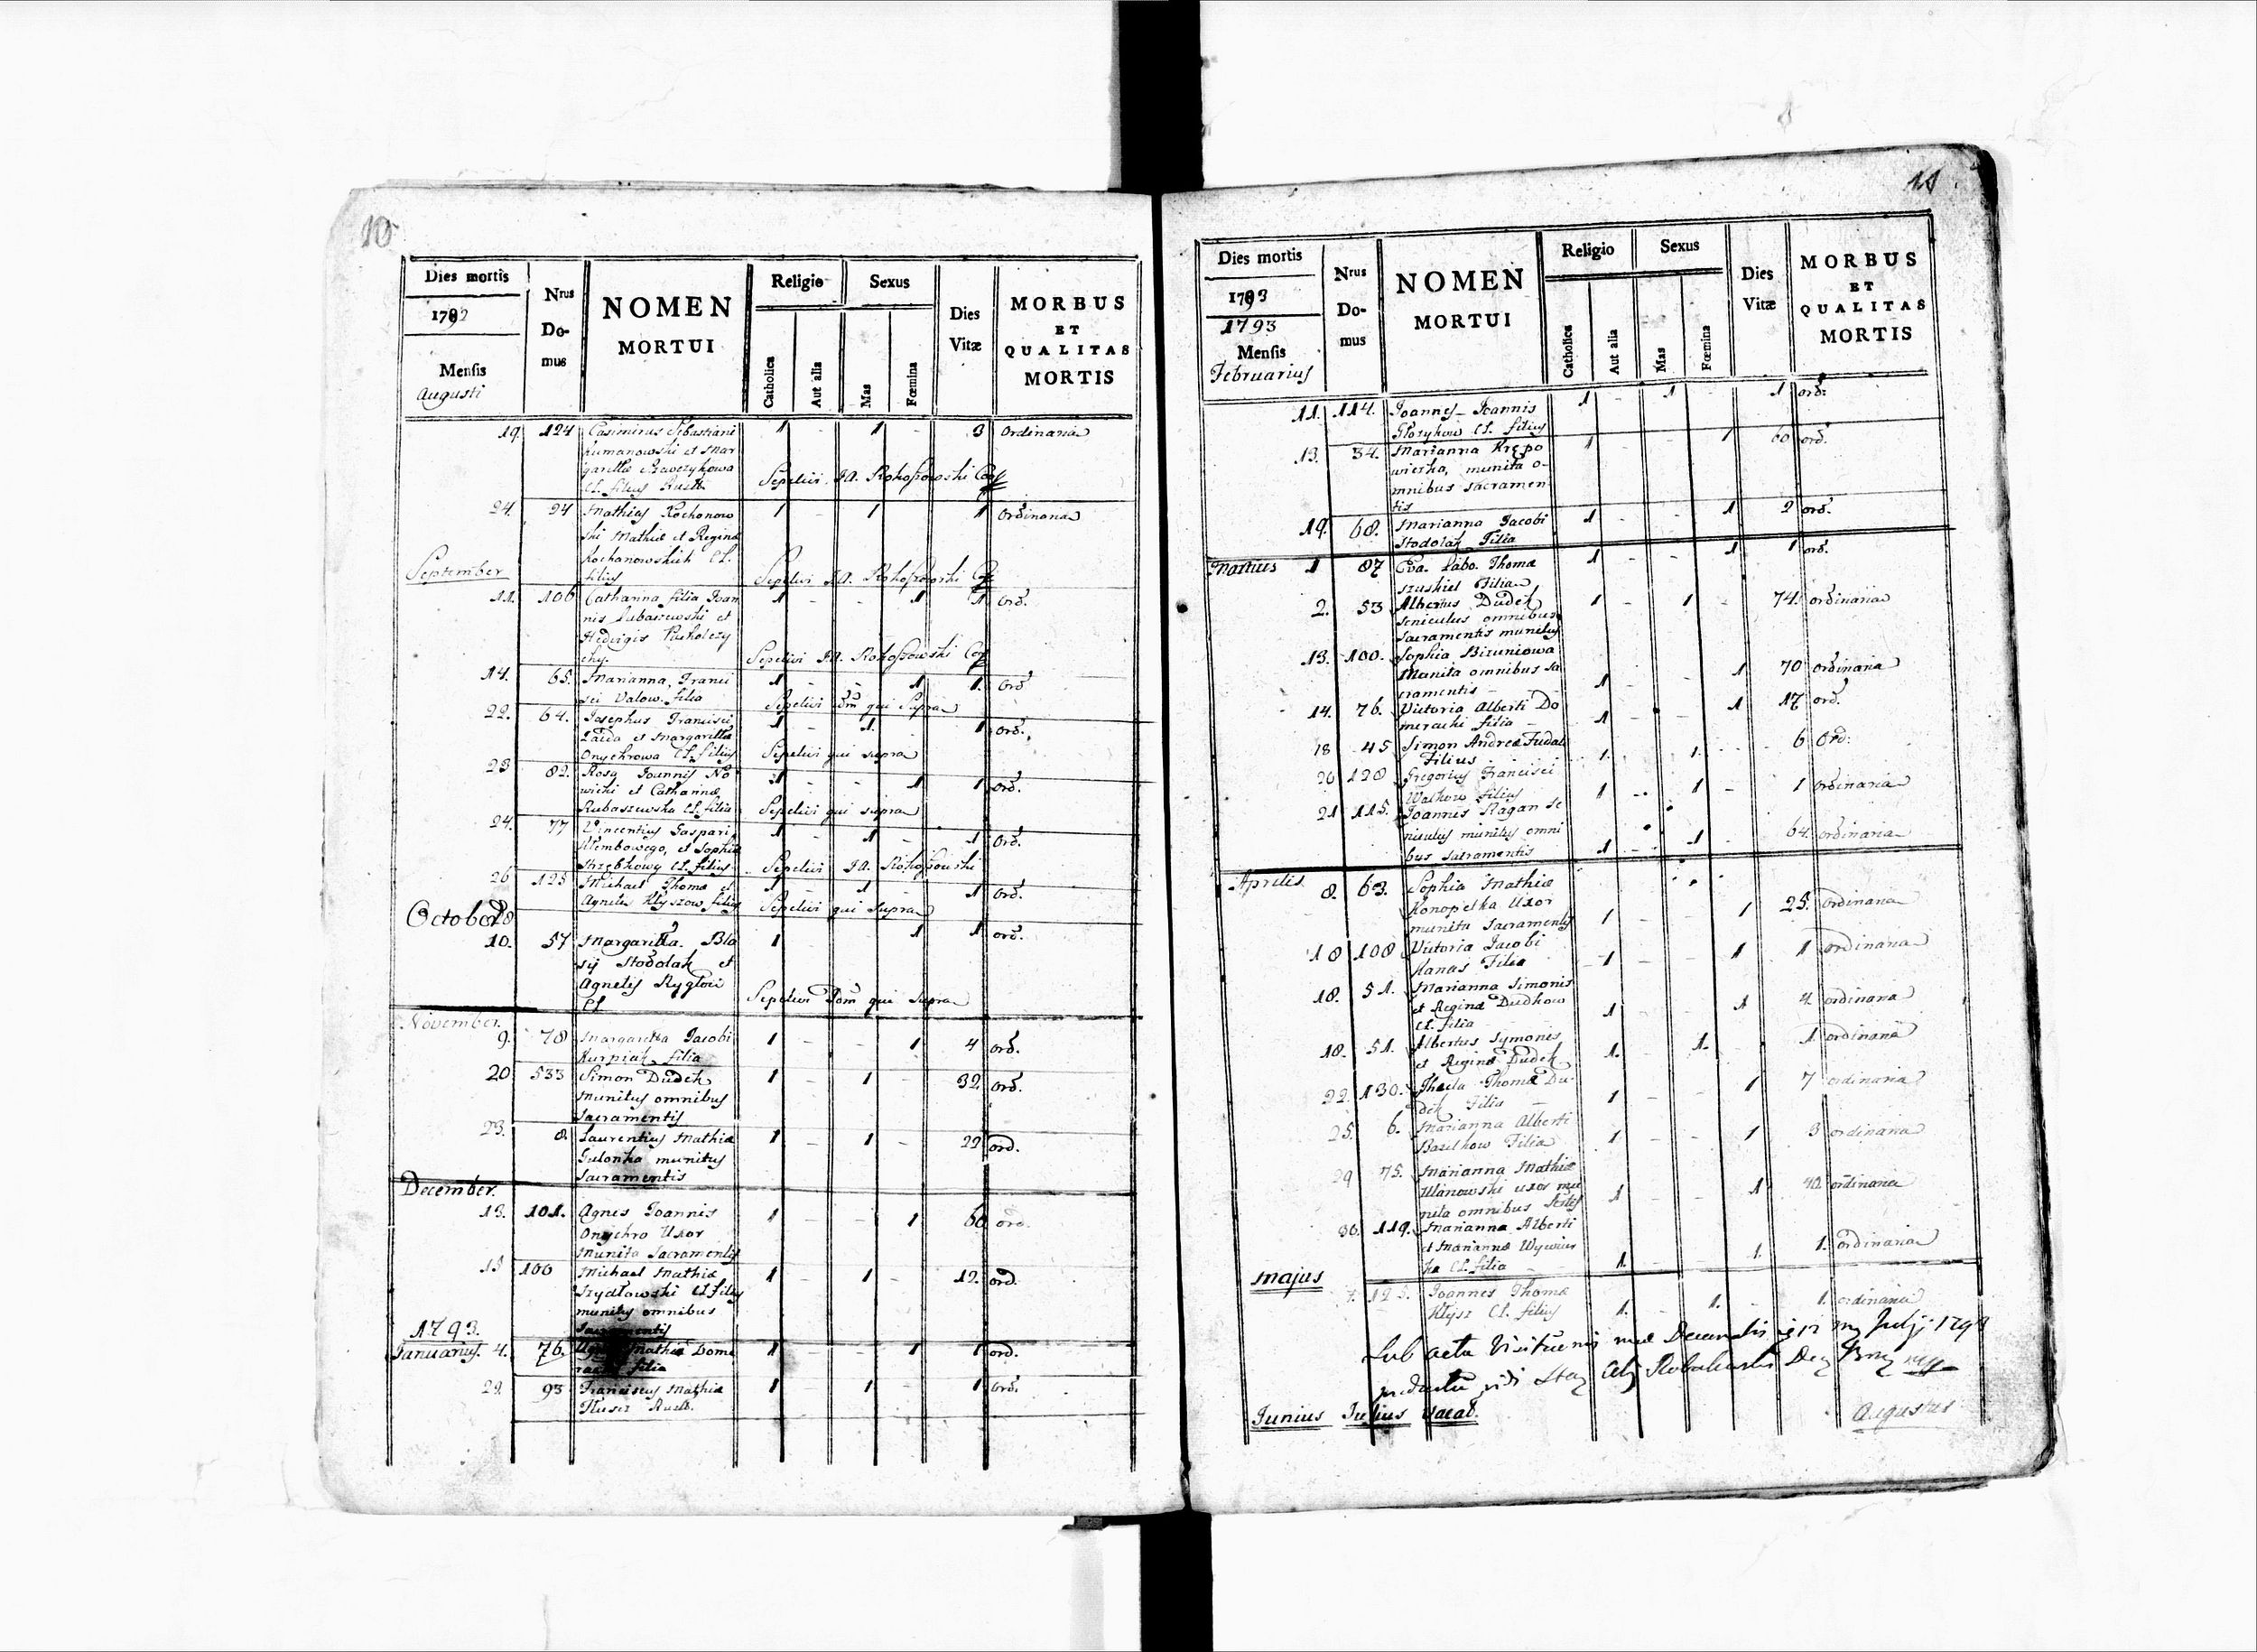 10
Dies mortis
1792
Mensis
Augusti
Nrus
Do-
mus
NOMEN
MORTUI
Religio
Catholica
Aut alia
Sexus
Mas
Fœmina
Dies
Vitæ
MORBUS
ET
QUALITAS
MORTIS
19. 124 Casimirus Sebastiani 1 - 1 - 3 Ordinaria
et Mar
garittæ
Cl. filius Sepelivi
24. 94 Mathias Kochonow 1 - 1 1 Ordinaria
ski Mathiæ et Regina
Kochanowskich Cl.
filius Sepelivi
September
11. 106 Catharina filia Joan 1 - - 1 1 ord.
nis Lubaszewski et
Hedvigis
Sepelivi
14. 65. Marianna, Franci 1 - - 1 1. ord
sci Valow. filia Sepelivi Idem qui Supra
22. 64. Josephus Francisci 1 - 1. 1 ord.
et Margaritta
Cl. filius Sepelivi qui supra
23 82. Rosa Joannis No 1 - - 1 1 ord.
wicki et Catharina
Rubaszewska Cl. filia Sepelivi qui supra
24. 77 Vincentius Gaspari 1 - 1 - 1 Ord.
et Sophia
Cl. filius Sepelivi
26 125 Michael Thomæ et 1 - 1 - 1 ord.
Agnetis Klyszow filius Sepelivi qui supra
October
10. 57 Margaritta. Bla 1 - 1 1 ord.
sij Stodolak et
Agnetis
Cl. Sepelivi Idem qui supra
November.
9. 78 Margaritta Jacobi 1 - - 1 4 ord.
Kurpiak filia
20 533 Simon Dudek 1 - 1 - 32. ord.
munitus omnibus
Sacramentis
23. 8. Laurentius Mathiæ 1 - 1 - 22 ord.
munitus
Sacramentis
December.
13. 101. Agnes Joannis 1 - - 1 60 ord.
Onychro Uxor
munita Sacramentis
100 Michael Mathiæ 1 - 1 - 12. ord.
Szydłowski Cl. filius
munitus omnibus
Sacramentis
1793.
Januarius. 4. 76. Mathiæ Dome 1 - - 1 1 ord.
filia
93 Franciscus Mathiæ 1 - 1 - 1 ord.
11.
Dies mortis
1793
1793
Mensis
Februarius
Nrus
Do-
mus
NOMEN
MORTUI
Religio
Catholica
Aut alia
Sexus
Mas
Fœmina
Dies
Vitæ
MORBUS
ET
QUALITAS
MORTIS
11. 114. Joannes Joannis 1 - 1 - 1 ord:
Cl. filius
13. 34. Marianna 1 - - 1 60 ord.
munita o-
mnibus sacramen-
tis
19. 68. Marianna Jacobi 1 - - 1 2 ord.
Stodolak Filia
Martius 1 87 Eva. Thoma 1 - - 1 1 ord.
Filia
2. 53 Albertus Dudek 1 - 1 - 74. ordinaria
seniculus omnibus
Sacramentis munitus
13. 100. Sophia 1 - - 1 70 ordinaria
Munita omnibus sa
cramentis
14. 76. Victoria Alberti Do 1 - - 1 17 ord.
filia
18 45 Simon Andreæ Fudali 1. - 1. 6 Ord:
Filius
20 120 Gregorius Francisci 1 - 1 - 1 ordinaria
Walkow filius
21 115. Joannes Ragan se 1 - 1 - 64. ordinaria
niculus munitus omni
bus Sacramentis
Aprilis. 8. 63. Sophia Mathiæ 1 - - 1 25. ordinaria
Konopelka Uxor
munita Sacramentis
18 108 Victoria Jacobi 1 - - 1 1 ordinaria
Kanas Filia
18. 51. Marianna Simonis 1 - - 1 4 ordinaria
et Reginæ Dudkow
Cl. filia
18. 51. Albertus Symonis 1. - 1. - 1. ordinaria
et Reginæ Dudek
22. 130. Thecla Thomæ Du- 1 - - 1 7 ordinaria
dek Filia
25. 6. Marianna Alberti 1 - - 1 3 ordinaria
Filia
29 75. Marianna Mathiæ 1 - - 1 ordinaria
Ulanowski uxor mu
nita omnibus
30. 119. Marianna Alberti 1. - - 1. 1. ordinaria
et Marianna
Cl. filia
Majus
Joannes Thomæ 1. - 1. - 1. ordinaria
Klysz Cl. filius
Sub
vidi
Junius Julius vacat.
Augustus